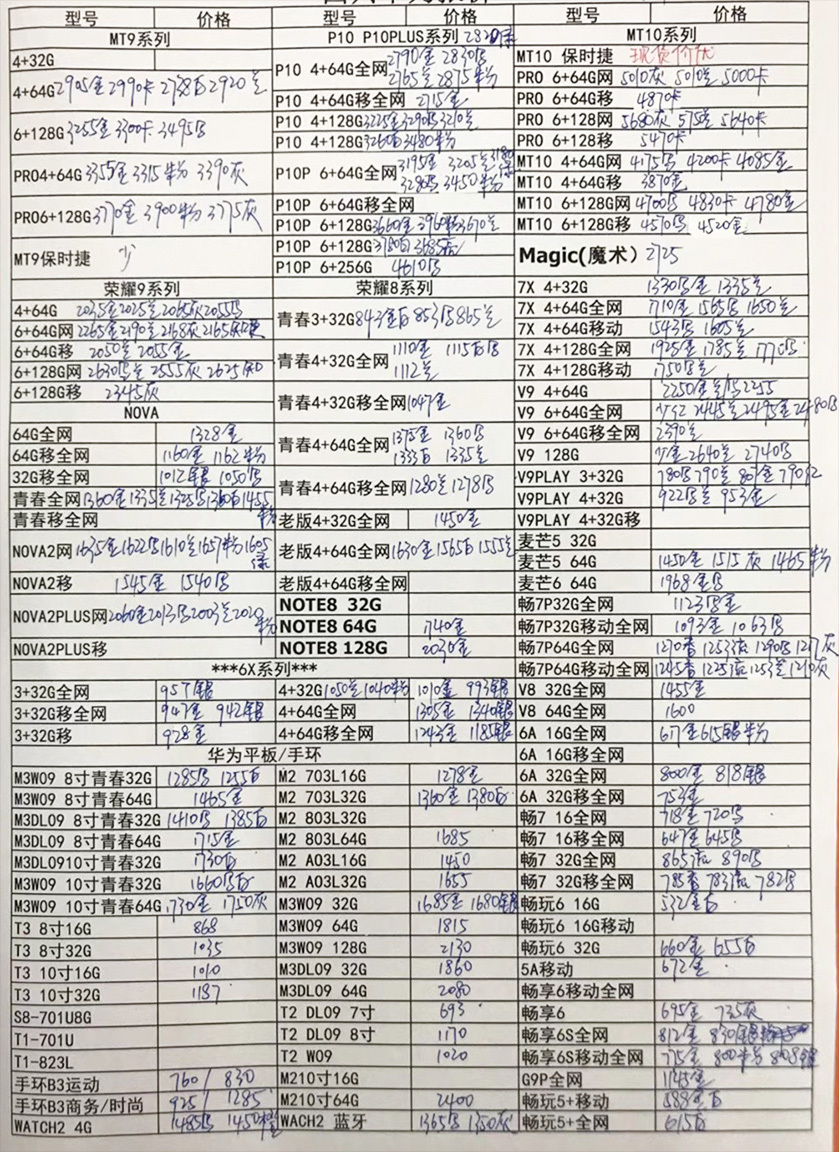 型号 价格 型号 价格 型号 价格
MT9系列 P10 P10PLUS系列 MT10系列
4+32G
4+64G 2905金 2990卡 2738白 2920兰
6+128G 3255金 3300卡 3495乌
PRO4+64G 3355金 3315半粉 3390灰
PRO6+128G 3770金 3900半粉 3775灰
MT9保时捷 少
P10 4+64G全网 2790金 2830乌
2765兰 2875半粉
P10 4+64G移全网 2715金
P10 4+128G 3225金 3290乌 3210兰
P10 4+128G移 3260白 3480半粉
P10P 6+64G全网 3195金 3205兰
3280乌 3450半粉
P10P 6+64G移全网
P10P 6+128G 3660金
P10P 6+128G 3685灰
P10P 6+256G 4610乌
MT10 保时捷 现货价优
PRO 6+64G网 5010灰 5010兰 5000卡
PRO 6+64G移 4870卡
PRO 6+128网 5680灰 5640卡
PRO 6+128移 5470卡
MT10 4+64G网 4175乌 4200卡 4085金
MT10 4+64G移 3870金
MT10 6+128G网 4700乌 4830卡 4780金
MT10 6+128G移 4570乌 4520金
Magic(魔术) 2725
荣耀9系列 荣耀8系列
4+64G 2035金 2025兰 2065灰 2055乌
6+64G网 2265金 2190兰 2168灰
6+64G移 2050兰 2055金
6+128G网 2630乌兰 2555灰
6+128G移 2345灰
NOVA
64G全网 1328金
64G移全网 1160金 1162半粉
32G移全网 1012银 1050乌
青春全网 1360金 1335兰 1325乌 1360白 1455半粉
青春移全网
NOVA2网 1635金 1622乌 1610兰 1657半粉 1605绿
NOVA2移 1545金 1540乌
NOVA2PLUS网 2060金 2013乌 2003兰
NOVA2PLUS移
青春3+32G 843金白 853乌 865兰
青春4+32G全网 1110金 1115白乌
1112兰
青春4+32G移全网 1047金
青春4+64G全网 1375金 1360乌
1333白 1335兰
青春4+64G移全网 1280兰 1278乌
老版4+32G全网 1450金
老版4+64G全网 1630金 1565白 1555兰
老版4+64G移全网
NOTE8 32G
NOTE8 64G 1740金
NOTE8 128G 2030金
7X 4+32G 1330乌金 1335兰
7X 4+64G全网 1710金 1565乌 1650兰
7X 4+64G移动 1543乌 1605兰
7X 4+128G全网 1925金 1785兰 1770乌
7X 4+128G移动 1750乌兰
V9 4+64G
V9 6+64G全网 2445兰 2495金 2480乌
V9 6+64G移全网 2390兰
V9 128G 少金 2640兰 2740乌
V9PLAY 3+32G 780乌 790兰
V9PLAY 4+32G 922乌兰 953金
V9PLAY 4+32G移
麦芒5 32G
麦芒5 64G 1450金 1515灰 1465半粉
麦芒6 64G 1968金乌
畅7P32G全网 1123乌金
畅7P32G移动全网 1093金 1063乌
畅7P64G全网
畅7P64G移动全网
***6X系列***
3+32G全网 957银 4+32G 1050兰 1040半粉 1010金 993银 V8 32G全网 1455金
3+32G移全网 947金 942银 4+64G全网 1305金 1340银 V8 64G全网 1600
3+32G移 928金 4+64G移全网 1243金 1185银 6A 16G全网 677金 615银半粉
华为平板/手环 6A 16G移全网
M3W09 8寸青春32G 1285乌 1255白 M2 703L16G 1278金 6A 32G全网 800金 818银
M3W09 8寸青春64G 1465金 M2 703L32G 1360金 1380白 6A 32G移全网 753金
M3DL09 8寸青春32G 1410乌 1385白 M2 803L32G 畅7 16全网 718金 720乌
M3DL09 8寸青春64G 1715金 M2 803L64G 1685 畅7 16移全网 647金 645乌
M3DL0910寸青春32G 1730白 M2 A03L16G 1450 畅7 32G全网 890乌
M3W09 10寸青春32G 1660乌白 M2 A03L32G 1655 畅7 32G移全网 782乌
M3W09 10寸青春64G 1730金 1750灰 M3W09 32G 1685金 1680银 畅玩6 16G 532金白
T3 8寸16G 868 M3W09 64G 1815 畅玩6 16G移动
T3 8寸32G 1035 M3W09 128G 2130 畅玩6 32G 660金 655白
T3 10寸16G 1010 M3DL09 32G 1860 5A移动 672金
T3 10寸32G 1187 M3DL09 64G 2080 畅享6移动全网
S8-701U8G T2 DL09 7寸 693 畅享6 695金 735灰
T1-701U T2 DL09 8寸 1170 畅享6S全网 812金 830银
T1-823L T2 W09 1020 畅享6S移动全网 775金 800半粉 808银
手环B3运动 760/830 M210寸16G G9P全网 1145金
手环B3商务/时尚 925/1285 M210寸64G 2400 畅玩5+移动 588金白
WATCH2 4G 1485乌 WACH2 蓝牙 1365乌 1350灰 畅玩5+全网 615白